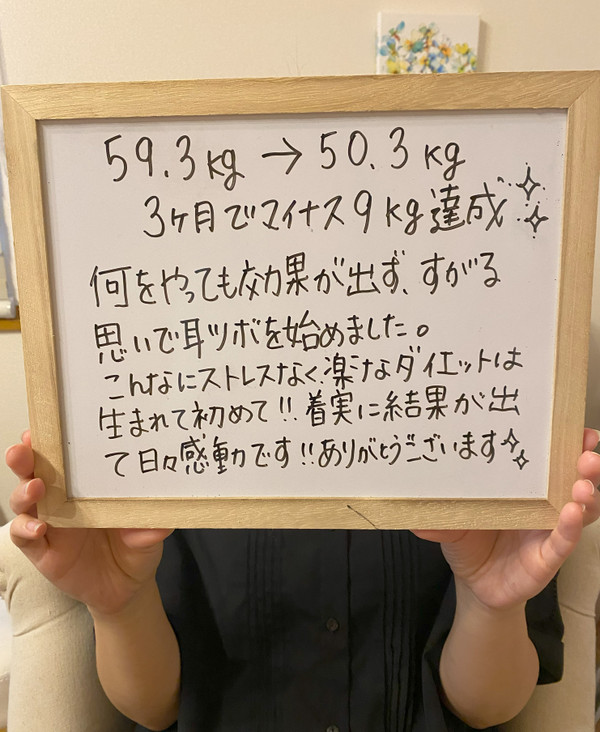 59.3kg → 50.3kg
3ヶ月でマイナス9kg達成
何をやっても効果が出ず、すがる
思いで耳ツボを始めました。
こんなにストレスなく楽なダイエットは
生まれて初めて!!着実に結果が出
て日々感動です!!ありがとうございます